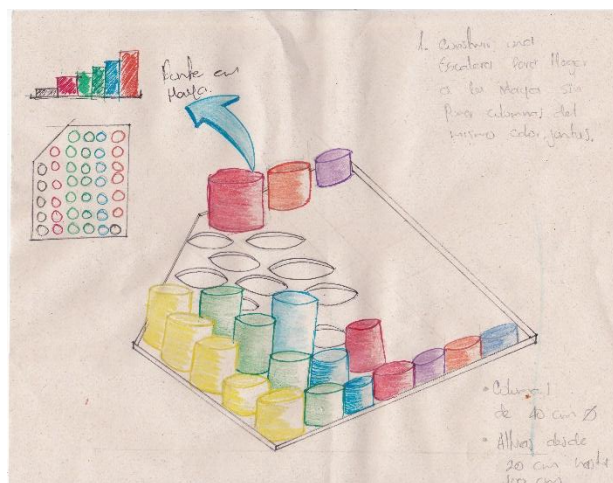 Punte en
Maya.
1. Construir una
Escalera para llegar
a la Maya sin
Poner columnas del
mismo color juntas.
• Columnas
de 40 cm Ø
• Alturas desde
20 cm hasta
cm